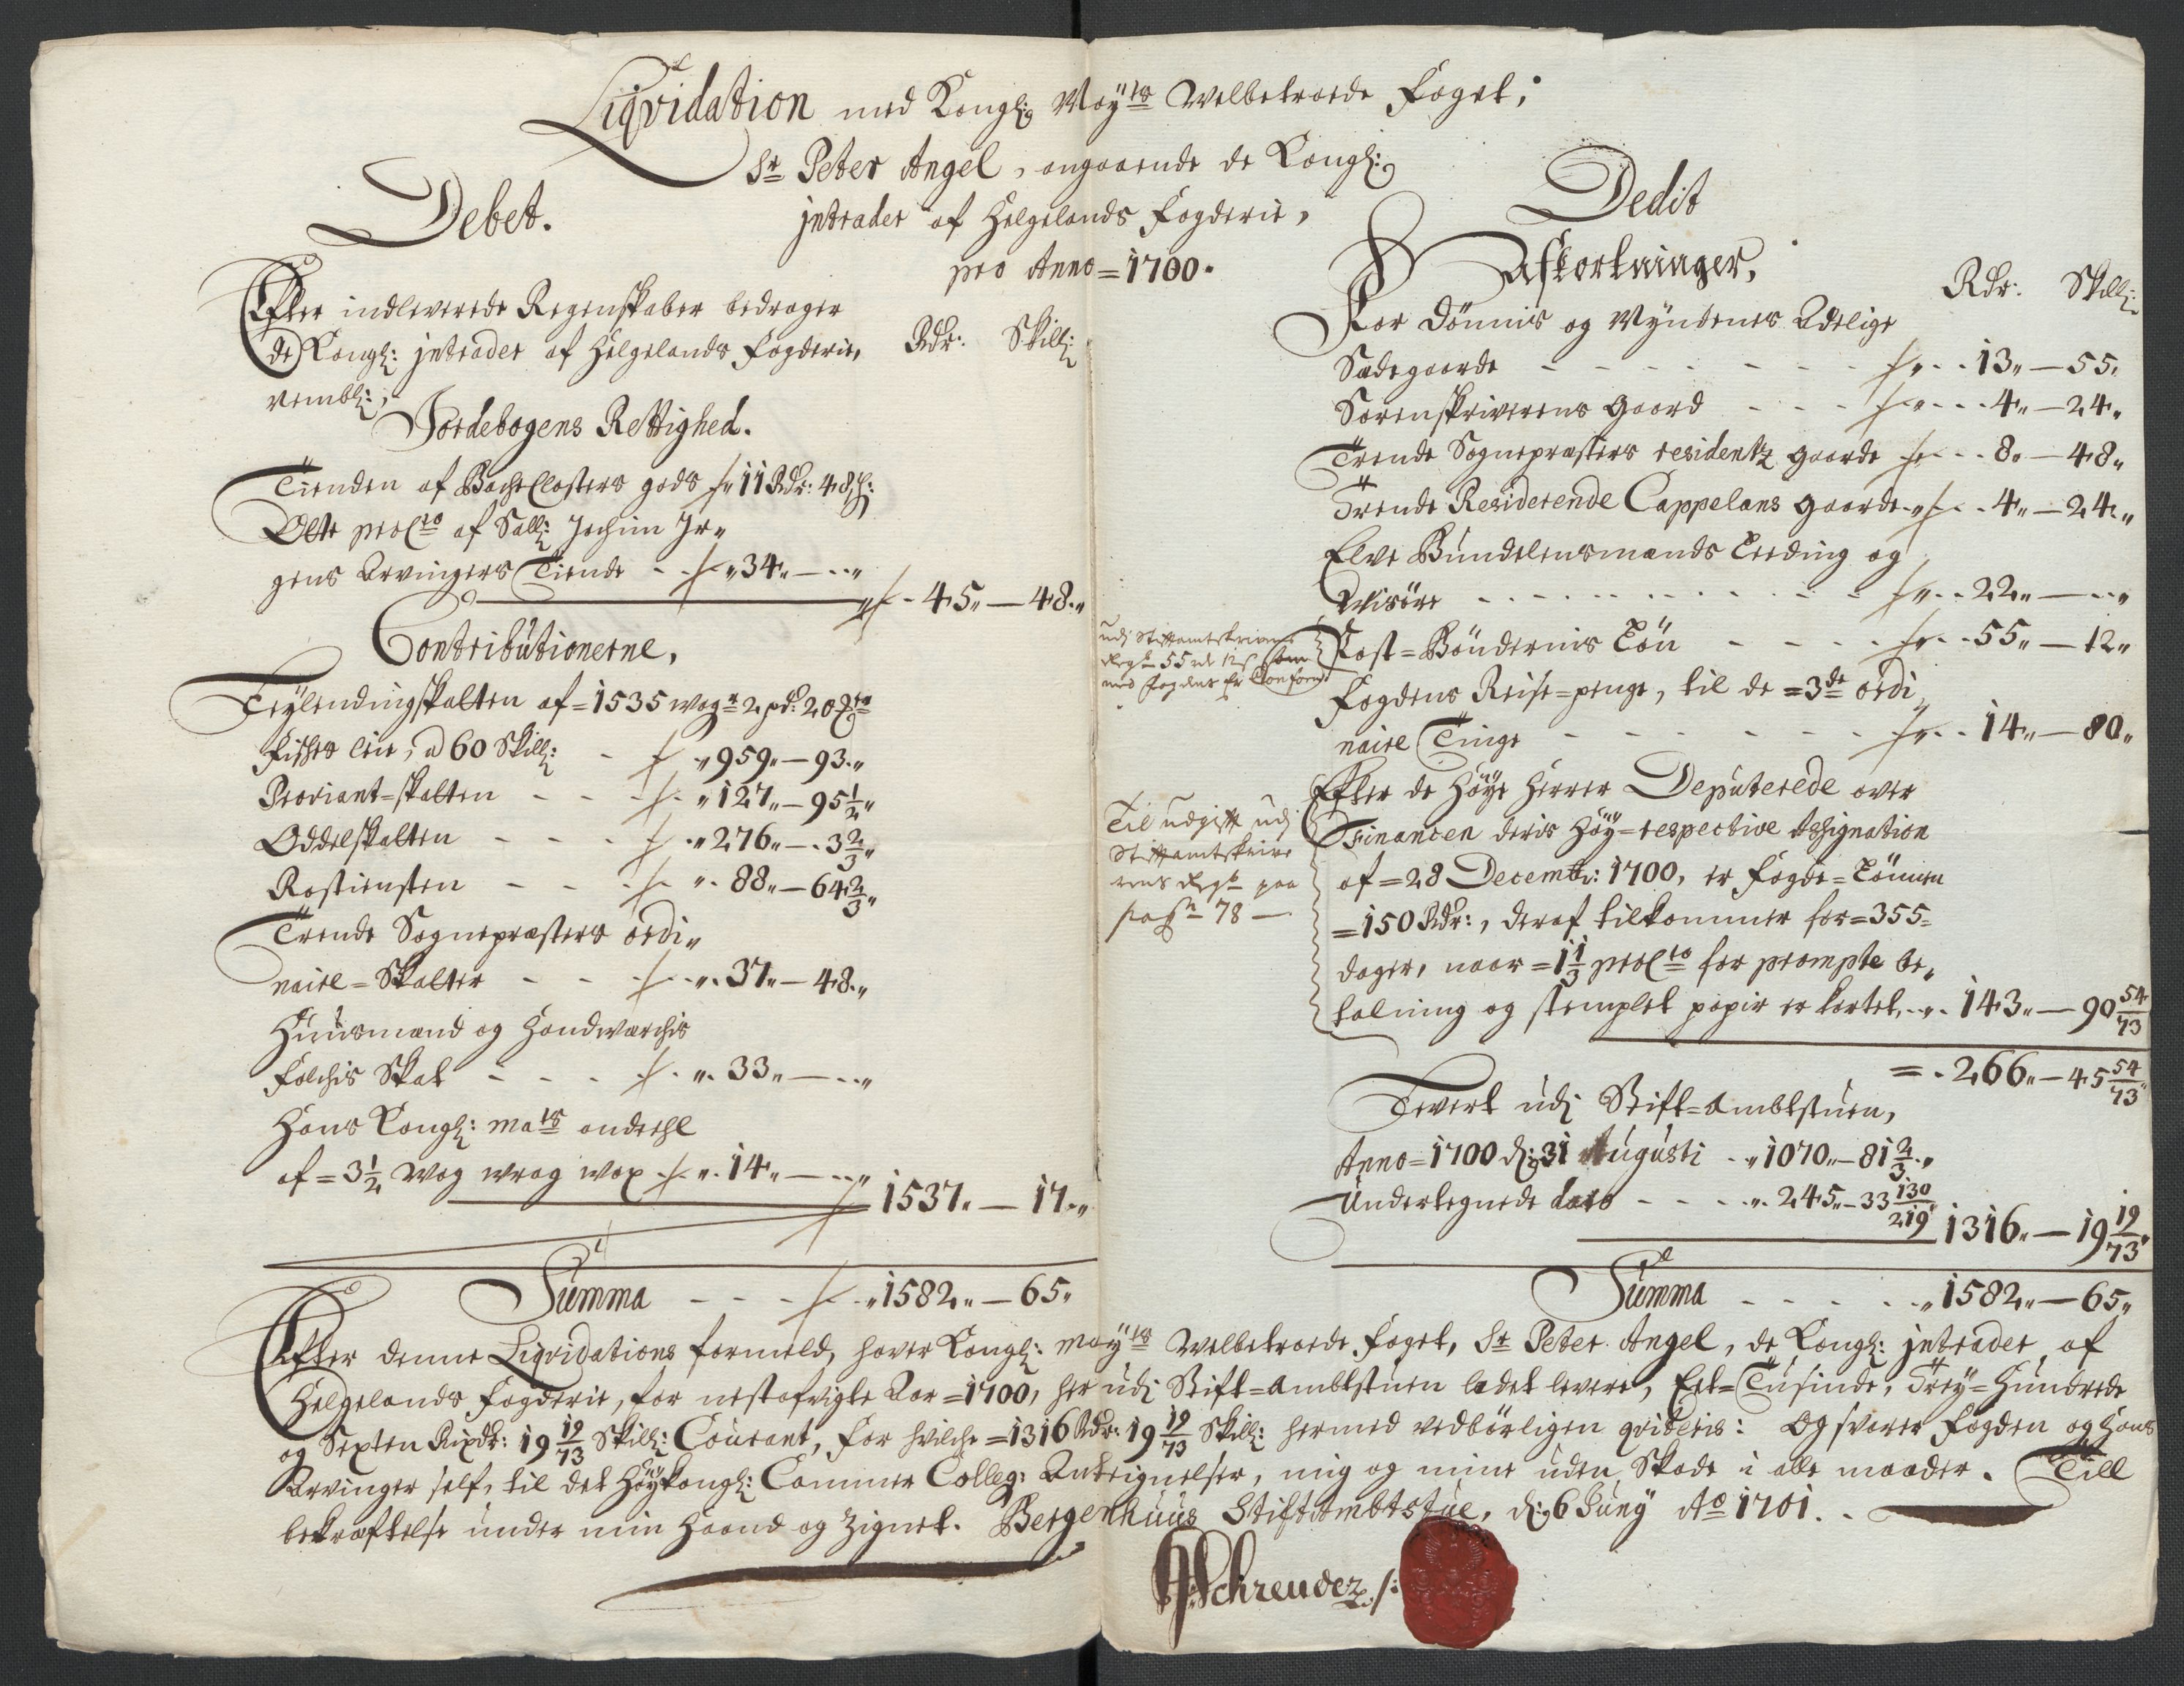 Liqvidation med Kongl: May:ts Welbetroede Foget,
Sr Peter Angel, angaaende de Kongl:
jntrader af Helgelands Fogderie,
pro Anno = 1700.
Debet.
Efter indleverede Regenskaber bedrager
de Kongl: jntrader af Helgelands Fogderie,
nembl:,
Rdr: Skill:
Jordebogens Rettighed.
Tienden af Bache Closters gods 11 Rdr: 48 s:
Otte procto af Sall: Jochim Jr„
gens Arvingers Tiende - - „34„ — - „
45„ — 48„
Contributionerne,
Leylendingskatten af = 1535 wog 2 pd: 20
Fishes leie, a 60 Skill: - „959„ — 93„
Proviant=skatten - - - „127„ — 95 1/2„
Oddelskatten - - - „276„ — 3 2/3„
Rostiensten - - - „88„ — 64 2/3„
Trende Sognepræsters ordi„
naire = Skatter - - - „37„ — 48„
Huusmænd og Handwærchs
Folchis Skat - - - „33„ — - „
Hans Kongl: mats andehl
af = 3 1/2 Wog wrag wax „14„ — - „
1537„ — 17„
Summa - - - „1582„ — 65„
Dedit
Afkortninger,
Rdr: Skill:
For Dönnis og Myndenes Adelige
Sædegaarde - - - - - - 13„ — 55„
Sorenskriverens gaard - - - 4„ — 24„
Trende Sognepræsters residentz gaarde - - 8„ — 48„
Trende Residerende Cappelans gaarde - - 4„ — 24„
Elve Bundelensmænds Leeding og
Wisöre - - - - - - 22„ — - „
udj Stiftamtskriver
Regsk 55 rdr 12 s som
med fogdens er Conform
Post = Böndernis Lön - - - - 55„ — 12„
Fogdens Reise = penge, til de = 3de ordi„
naire Tinge - - - - - - 14„ — 80„
Til udgift udj
Stiftamtskrive
rens Regsk paa
pag 78 —
Efter de Höye Herrer Deputerede over
Financen deris Höy = respective designation
af = 28 Decembr: 1700, er Fogde = Lönnen
= 150 Rdr:, deraf tilkommer for = 355 =
dager, naar = 1 1/3 procto for prompte be„
talning og stemplet papir er kortet - „ 143„ — 90 54/73
= - 266„ — 45 54/73„
Levert udj Stift = Ambtstuen,
Anno = 1700 d: 31 Augusti - „1070„ — 81 2/3„
Undertegnede dato - - - „245„ — 33 130/219„
1316„ — 19 19/73„
Summa - - - - - „1582„ — 65„
Efter denne Liqvidations formeld, haver Kongl: mayts Welbetroede Foget, Sr Peter Angel, de Kongl: jntrader af
Helgelands Fogderie, for nestafvigte Aar = 1700, her udj Stift = Ambtstuen ladet levere, Eet = Tusinde, Trey = Hundrede
og Sexten Rixdr: 19 19/73 Skill: Courant, For hvilche = 1316 Rdr: 19 19/73 Skill: hermed vedbörligen qviteris: Og svarer Fogden og hans
Arvinger self, til det Höykongl: Cammer Colleg: Antegnelser, mig og mine uden Skade i alle maader. Till
bekræftelse under min Haand og Zignet. Bergenhuus Stiftambtstue, d: 6 Juny Ao 1701.
Schreuder